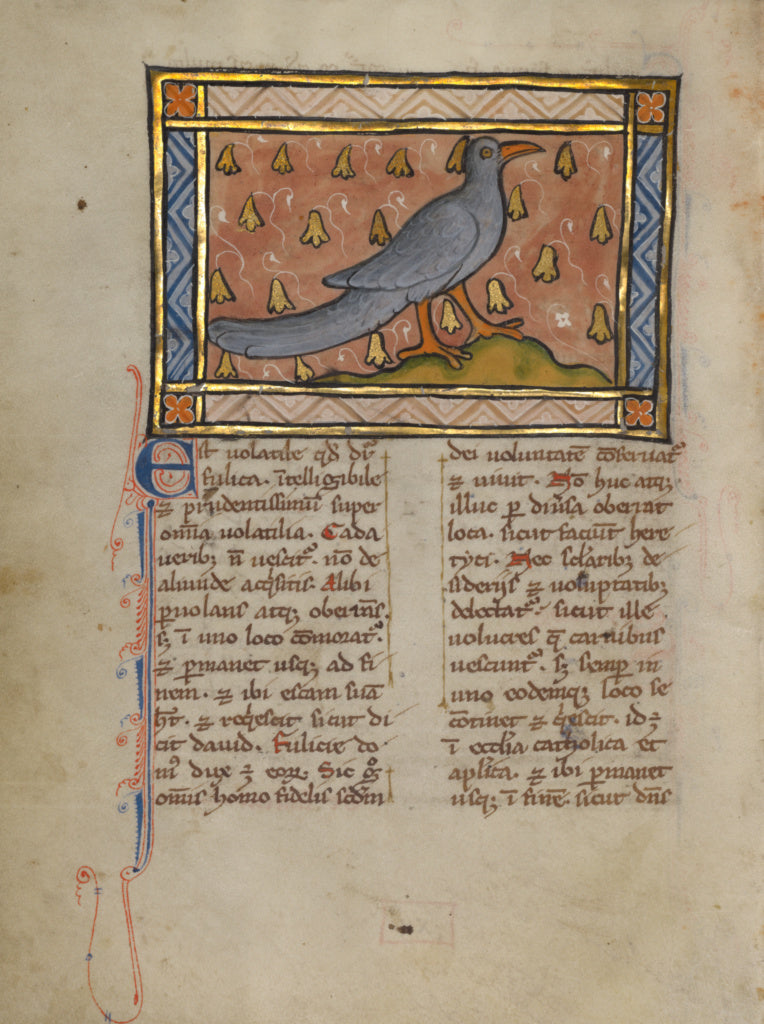 Est volatile qd dr̃
fulica. ĩtelligibile
⁊ prudentissimũ super
om̃ia volatilia. Cada
veribꝫ ñ vescitᷣ. nõ de
aliunde acq̃sitis. Alibi
ꝑuolans atqꝫ oberrãs.
sꝫ ĩ uno loco cõmoratᷣ.
⁊ ꝑmanet usqꝫ ad fi
nem. ⁊ ibi escam suã
ht̃. ⁊ reqͥescit sicut di
cit dauid. Fulicie do
mꝰ dux ẽ eoꝝ. Sic gͦ
omĩs homo fidelis scd̃m
dei voluntatẽ cõseruatᷣ
⁊ uiuit. Nõ huc atqꝫ
illuc ꝑ diũsa oberrat
loca. sicut faciũt here
tyci. Nec sclãribꝫ de
siderijs ⁊ uoluptatibꝫ
delectatᷣ. sicut ille
uolucres q̃ carnibus
uescuntᷣ. sꝫ semꝑ in
uno eodemqꝫ loco se
cõtinet ⁊ qͥescit. id ẽ
ĩ eccl̃ia catholica et
apl̃ica. ⁊ ibi ꝑmanet
usqꝫ ĩ finẽ. sicut dñs